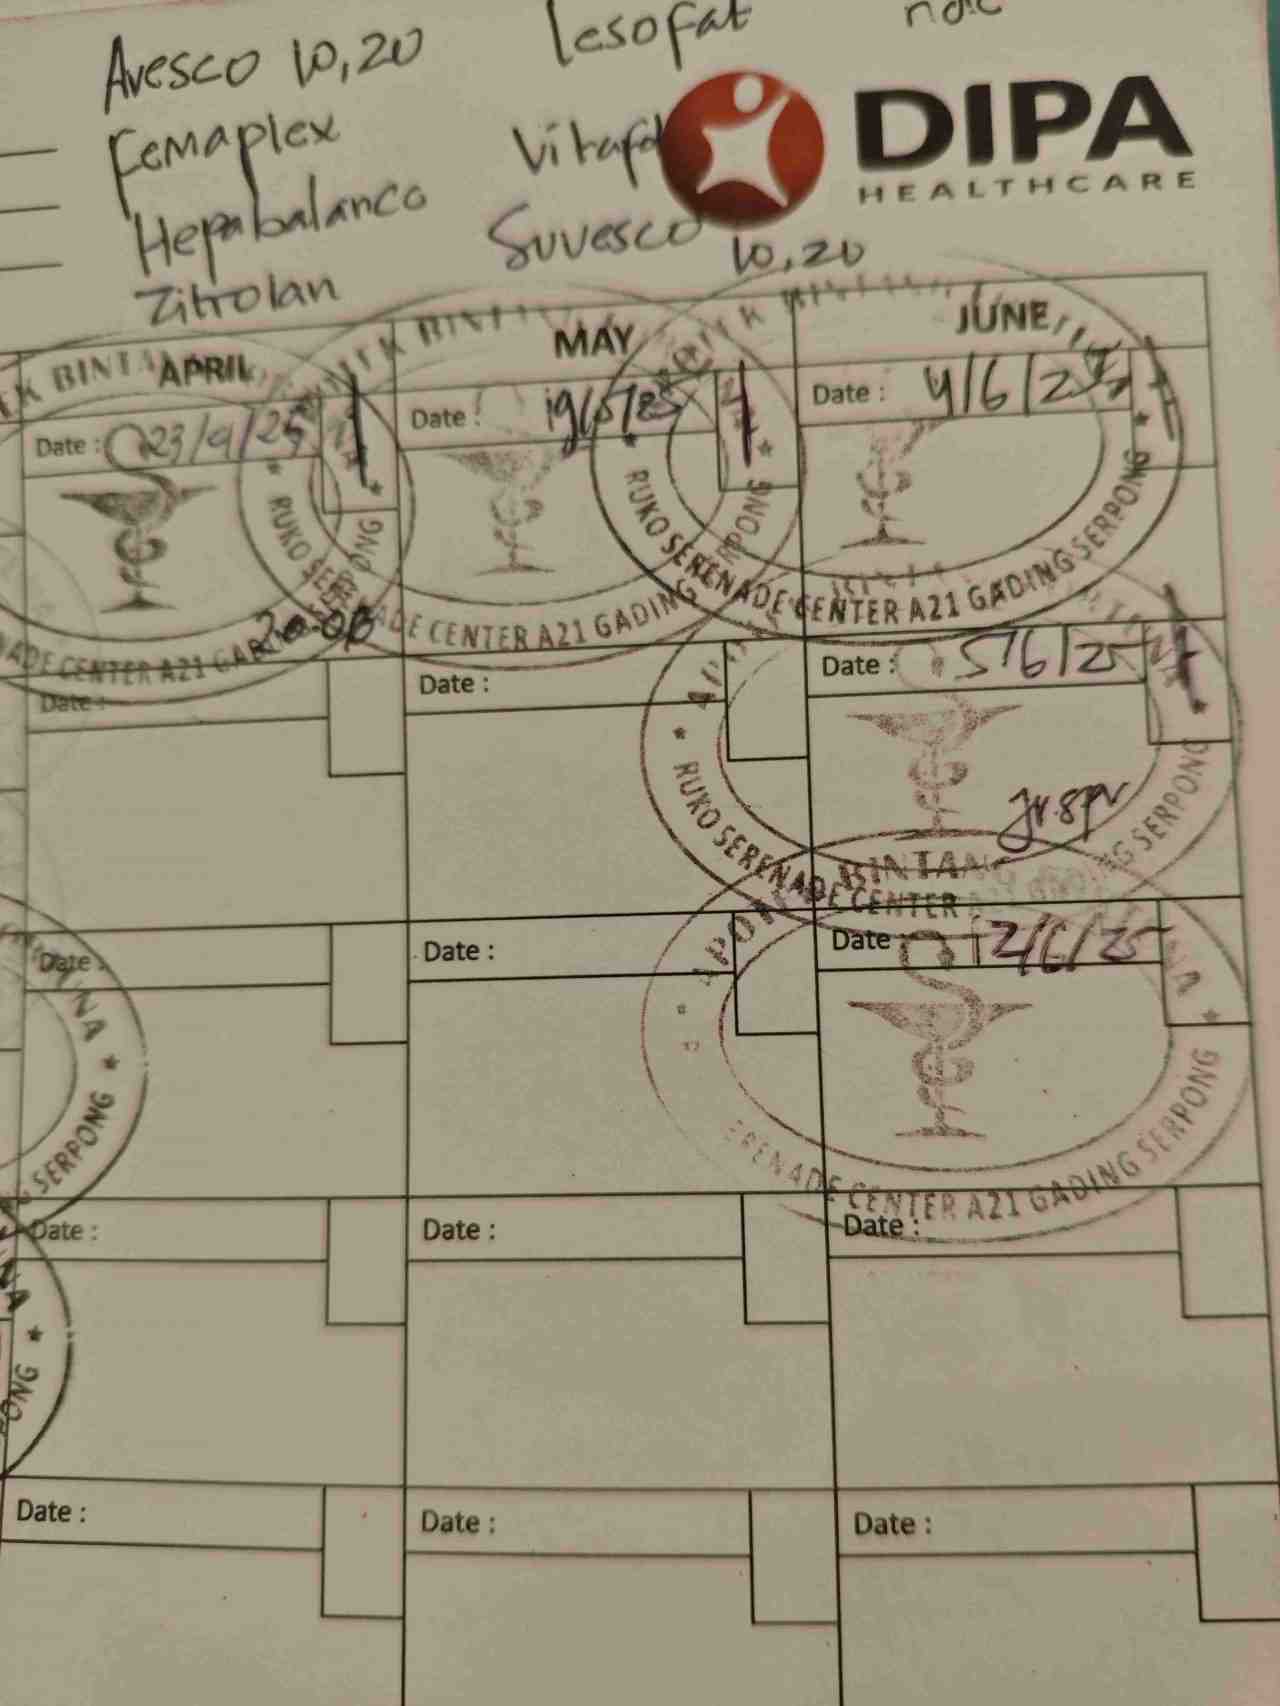 Avesco 10,20 lesofat
Femaplex Vitafol
Hepabalanco Suvesco 10,20
Zitrolan
DIPA
HEALTHCARE
APRIL MAY JUNE
Date : 23/4/25 Date : 19/5/25 Date : 4/6/25
RUKO SERENADE CENTER A21 GADING SERPONG
RUKO SERENADE CENTER A21 GADING SERPONG
20:00
Date : Date : 5/6/25
RUKO SERENADE CENTER SERPONG
BINTANG
Date : Date : Date : 12/6/25
SERPONG
CENTER A21 GADING SERPONG
Date : Date : Date :
Date : Date : Date :